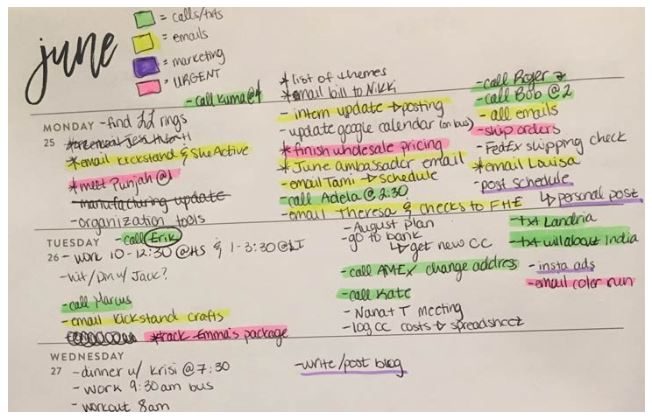 june
= calls/txts
= emails
= marketing
= URGENT
- call Kuma @4
* list of themes
* email bill to Nikki
- call Roger
- call Bob @ 2
MONDAY
25
- find rings
* email kickstand & SheActive
* meet Punjah @1
- manufacturing update
- organization tools
- intern update → posting
- update google calendar (on bus)
* finish wholesale pricing
* June ambassador email
- email Tami → schedule
- call Adela @ 2:30
- email Theresa & checks to FHE
- all emails
- ship orders
- FedEx shipping check
* email Louisa
- post schedule
↳ personal post
TUESDAY
26
- call Erik
- work 10-12:30 @HS & 1-3:30 @LJ
- hit/Dm w/ Jack?
- call Marcus
- email kickstand crafts
* track Emma's package
- August plan
- go to bank
↳ get new CC
- call AMEX change address
- call Kate
- Nana + T meeting
- log CC costs → spreadsheet
- txt Landria
- txt will about India
- insta ads
- email color run
WEDNESDAY
27
- dinner w/ Krisi @ 7:30
- work 9:30am bus
- workout 8am
- write/post blog